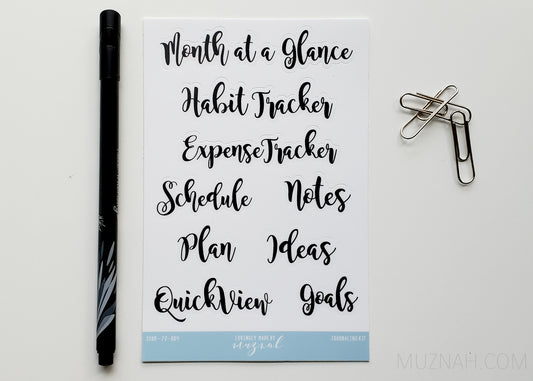 Month at a Glance
Habit Tracker
ExpenseTracker
Schedule Notes
Plan Ideas
QuickView Goals
muznah
MUZNAH.COM